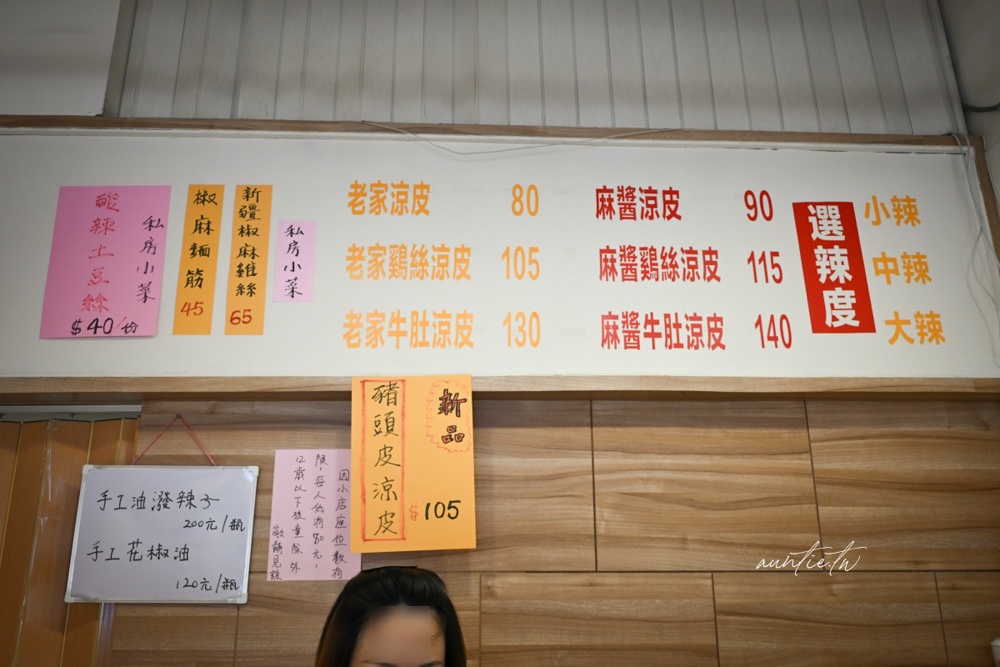 老家涼皮 80
老家鷄絲涼皮 105
老家牛肚涼皮 130
麻醬涼皮 90
麻醬鷄絲涼皮 115
麻醬牛肚涼皮 140
選辣度
小辣
中辣
大辣
私房小菜
酸辣土豆絲
$40/份
椒麻麵筋
45
新疆椒麻雞絲
65
私房小菜
新品
豬頭皮涼皮
$105
手工油潑辣子
200元/瓶
手工花椒油
120元/瓶
因小店座位數有
限,每人低消80元,
12歲以下孩童除外
敬請見諒
auntie.tw